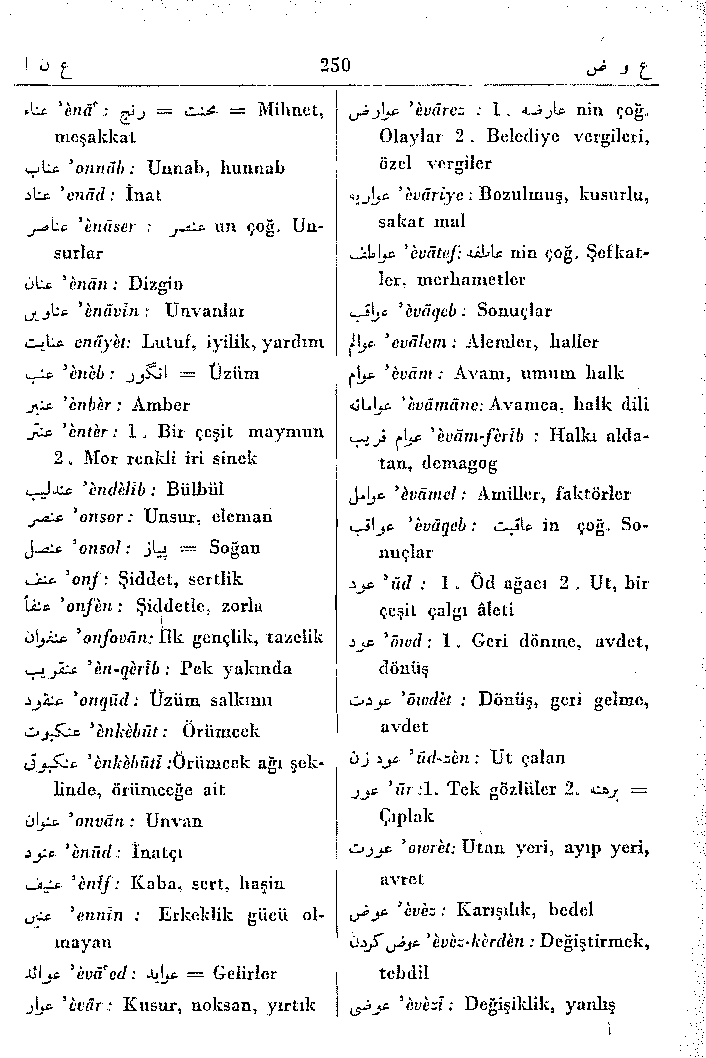 ع ن ا 250 ع و ض
عناء 'ènāʿ : رنج = محنت = Mihnet,
meşakkat
عناب 'onnāb : Unnab, hunnab
عناد 'enād : İnat
عناصر 'ènāser : عنصر un çoğ. Un-
surlar
عنان 'ènān : Dizgin
عناوین 'ènāvīn : Unvanlar
عنایت enāyèt: Lutuf, iyilik, yardım
عنب 'èneb : انگور = Üzüm
عنبر 'ènbèr : Amber
عنتر 'èntèr : 1. Bir çeşit maymun
2. Mor renkli iri sinek
عندلیب 'èndèlīb : Bülbül
عنصر 'onsor : Unsur, eleman
عنصل 'onsol : پیاز = Soğan
عنف 'onf : Şiddet, sertlik
عنفاً 'onfèn : Şiddetle, zorla
عنفوان 'onfovān: İlk gençlik, tazelik
عنقریب 'èn-qèrīb : Pek yakında
عنقود 'onqūd : Üzüm salkımı
عنکبوت 'ènkèbūt : Örümcek
عنکبوتی 'ènkèbūtī :Örümcek ağı şek-
linde, örümceğe ait
عنوان 'onvān : Unvan
عنود 'ènūd : İnatçı
عنیف 'ènīf : Kaba, sert, haşin
عنین 'ennīn : Erkeklik gücü ol-
mayan
عوائد 'èvāʿed : عواید = Gelirler
عوار 'èvār : Kusur, noksan, yırtık
عوارض 'èvārez : 1. عارضه nin çoğ.
Olaylar 2. Belediye vergileri,
özel vergiler
عواریه 'èvāriye : Bozulmuş, kusurlu,
sakat mal
عواطف 'èvātef: عاطفه nin çoğ. Şefkat-
ler, merhametler
عواقب 'èvāqeb : Sonuçlar
عوالم 'evālem : Alemler, haller
عوام 'èvām : Avam, umum halk
عوامانه 'èvāmāne: Avamca, halk dili
عوام فریب 'èvām-fèrīb : Halkı alda-
tan, demagog
عوامل 'èvāmel : Amiller, faktörler
عواقب 'èvāqeb : عاقبت in çoğ. So-
nuçlar
عود 'ūd : 1. Öd ağacı 2. Ut, bir
çeşit çalgı âleti
عود 'ōwd : 1. Geri dönme, avdet,
dönüş
عودت 'ōwdèt : Dönüş, geri gelme,
avdet
عود زن 'ūd-zèn : Ut çalan
عور 'ūr :1. Tek gözlüler 2. برهنه =
Çıplak
عورت 'owrèt: Utan yeri, ayıp yeri,
avret
عوض 'èvèz : Karışılık, bedel
عوض کردن 'èvèz-kèrdèn : Değiştirmek,
tebdil
عوضی 'èvèzī : Değişiklik, yanlış